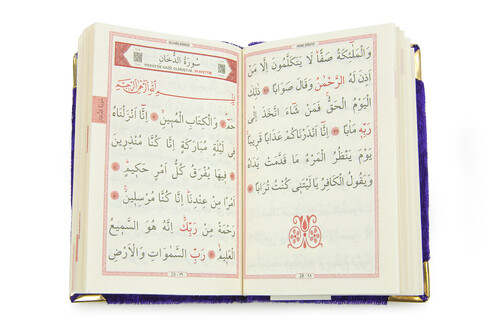 وَالْمَلٰٓئِكَةُ صَفًّا لَا يَتَكَلَّمُونَ اِلَّا مَنْ
اَذِنَ لَهُ الرَّحْمٰنُ وَقَالَ صَوَابًا ذٰلِكَ
الْيَوْمُ الْحَقُّ فَمَنْ شَاءَ اتَّخَذَ اِلٰى
رَبِّهٖ مَاٰبًا اِنَّٓا اَنْذَرْنَاكُمْ عَذَابًا قَرٖيبًا
يَوْمَ يَنْظُرُ الْمَرْءُ مَا قَدَّمَتْ يَدَاهُ
وَيَقُولُ الْكَافِرُ يَالَيْتَنٖي كُنْتُ تُرَابًا
سُورَةُ الدُّخَانِ
بِسْمِ اللّٰهِ الرَّحْمٰنِ الرَّحٖيمِ
حٰمٓ وَالْكِتَابِ الْمُبٖينِ اِنَّٓا اَنْزَلْنَاهُ
فٖي لَيْلَةٍ مُبَارَكَةٍ اِنَّا كُنَّا مُنْذِرٖينَ
فٖيهَا يُفْرَقُ كُلُّ اَمْرٍ حَكٖيمٍ
اَمْرًا مِنْ عِنْدِنَا اِنَّا كُنَّا مُرْسِلٖينَ
رَحْمَةً مِنْ رَبِّكَ اِنَّهُ هُوَ السَّمٖيعُ
الْعَلٖيمُ رَبِّ السَّمٰوَاتِ وَالْاَرْضِ